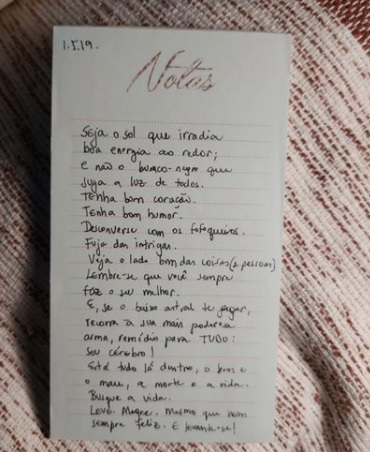 1.5.19.
Notas
Seja o sol que irradia
boa energia ao redor;
e não o buraco-negro que
suga a luz de todos.
Tenha bom coração.
Tenha bom humor.
Desconverse com os fofoqueiros.
Fuja das intrigas.
Veja o lado bom das coisas (e pessoas)
Lembre-se que você sempre
faz o seu melhor.
E, se o baixo astral te pegar,
recorra à sua mais poderosa
arma, remédio para TUDO:
seu cérebro!
Está tudo lá dentro, o bem e
o mau, a morte e a vida.
Busque a vida.
Leve. Alegre. Mesmo que nem
sempre feliz. E levante-se!